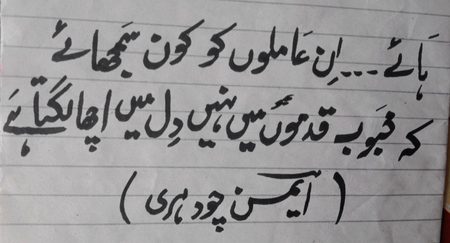 ہائے ... اِن عاملوں کو کون سمجھائے
کہ محبوب قدموں میں نہیں دِل میں اچھا لگتا ہے
( ایمن چودہری )